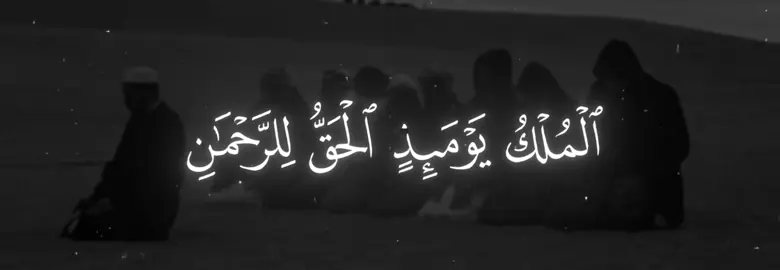 ٱلْمُلْكُ يَوْمَئِذٍ ٱلْحَقُّ لِلرَّحْمَٰنِ